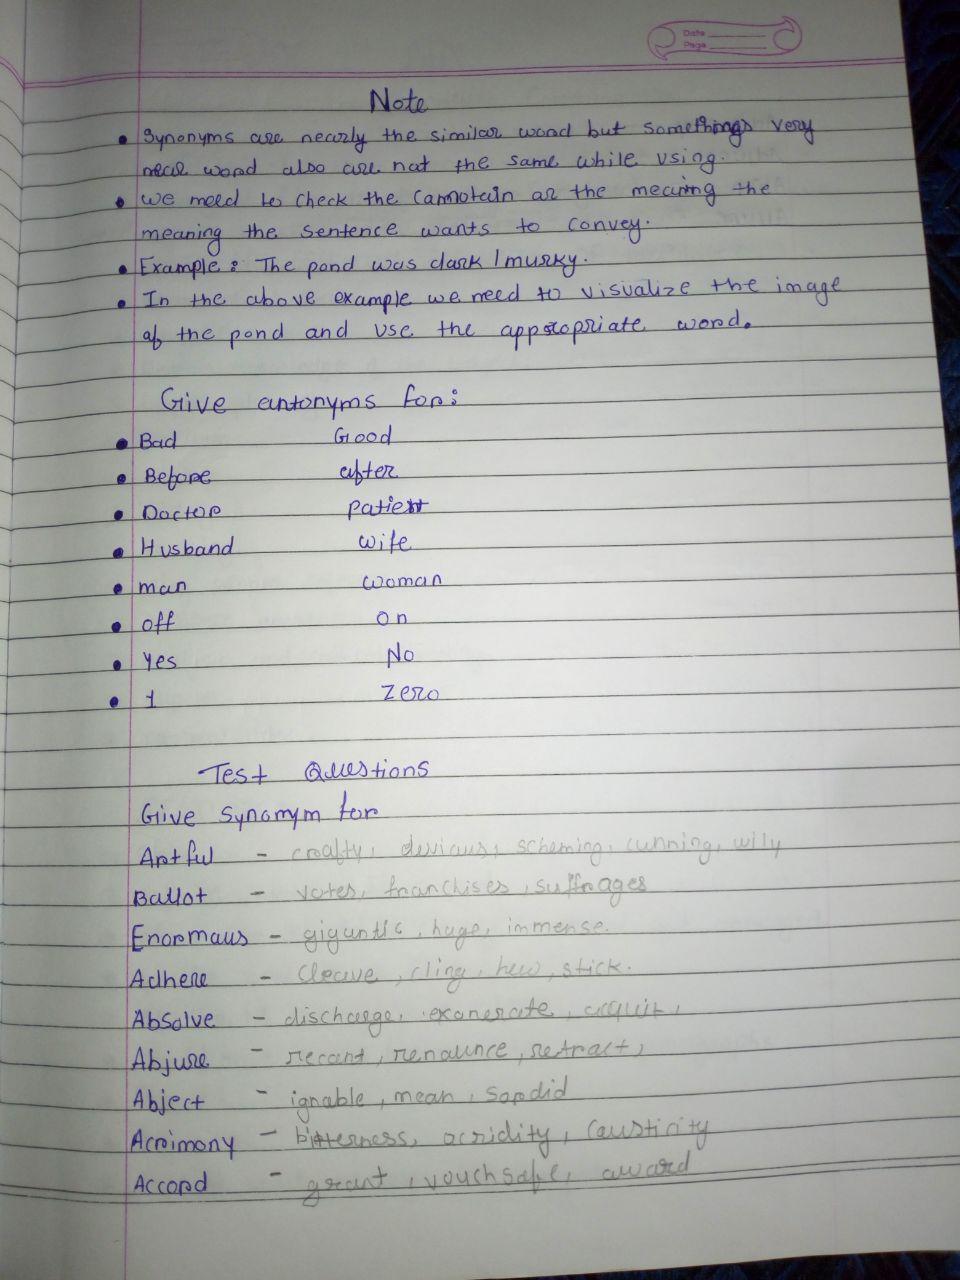 Date
Page
Note
• Synonyms are nearly the similar word but somethings very
near word also are not the same while using.
• We need to check the Connotein or the meaning the
meaning the sentence wants to convey.
• Example: The pond was dark / murky.
• In the above example we need to visualize the image
of the pond and use the appropriate word.
Give antonyms for:
• Bad Good
• Before after
• Doctor patient
• Husband wife
• man woman
• off on
• Yes No
• 1 Zero
Test Questions
Give Synomym for
Artful - crafty, devious, scheming, cunning, wily
Ballot - votes, franchises, suffrages
Enormaus - gigantic, huge, immense.
Adhere - Cleave, cling, hew, stick.
Absolve - discharge, exonerate, acquit,
Abjure - recant, renounce, retract,
Abject - ignable, mean, Sordid
Acrimony - bitterness, acridity, Causticity
Accord - grant, vouchsafe, award